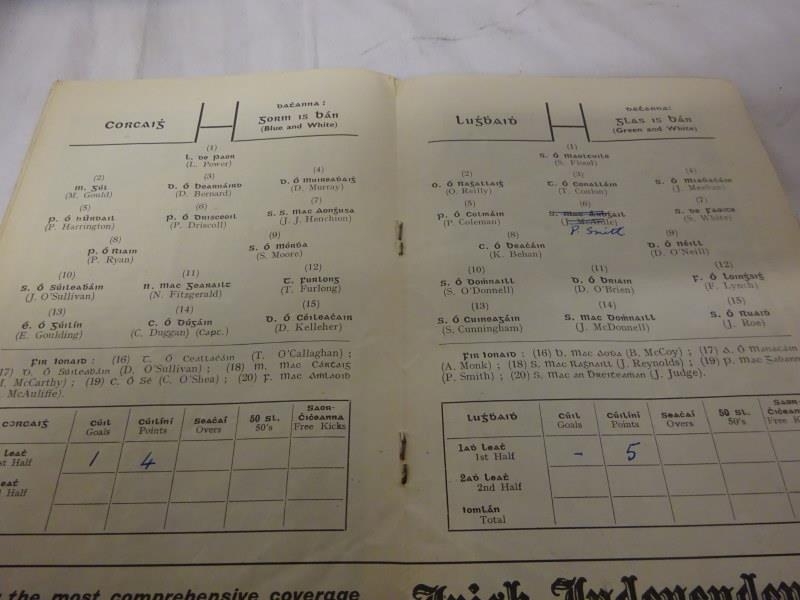 Corcaiġ
Daṫanna:
Gorm is Bán
(Blue and White)
(1)
L. de Paor
(L. Power)
(2)
(3)
(4)
M. Gúl
D. Ó Bearnáird
D. Ó Muireaḋaiġ
(M. Gould)
(D. Bernard)
(D. Murray)
(5)
(6)
(7)
P. Ó hUrdail
P. Ó Drisceoil
S. S. Mac Aonġusa
(P. Harrington)
(P. Driscoll)
(J. J. Henchion)
(8)
(9)
P. Ó Riain
S. Ó Mórḋa
(P. Ryan)
(S. Moore)
(10)
(11)
(12)
S. Ó Súileaḃáin
N. Mac Gearailt
T. Furlong
(J. O'Sullivan)
(N. Fitzgerald)
(T. Furlong)
(13)
(14)
(15)
É. Ó Gúilín
C. Ó Dúgáin
D. Ó Céileaċair
(E. Goulding)
(C. Duggan) (Capt.)
(D. Kelleher)
Fir Ionaid: (16) T. Ó Ceallaċáin (T. O'Callaghan);
(17) D. Ó Súileaḃáin (D. O'Sullivan); (18) M. Mac Cártaiġ
McCarthy); (19) C. Ó Sé (C. O'Shea); (20) F. Mac Aṁlaoiḃ
McAuliffe).
Corcaiġ
Cúil
Goals
Cúilíní
Points
Seaċaí
Overs
50 Sl.
50's
Saor-Ċiceanna
Free Kicks
Leaṫ
Half
1
4
Leaṫ
Half
the most comprehensive coverage
Luġḃaiḋ
Daṫanna:
Glas is Bán
(Green and White)
(1)
S. Ó Maoltuile
(S. Flood)
(2)
(3)
(4)
O. Ó Raġallaiġ
T. Ó Conalláin
S. Ó Miaḋaċáin
(O. Reilly)
(T. Conlon)
(J. Meehan)
(5)
(6)
(7)
P. Ó Colmáin
S. de Faoite
(P. Coleman)
P. Smith
(S. White)
(8)
(9)
C. Ó Beaċáin
D. Ó Néill
(K. Behan)
(D. O'Neill)
(10)
(11)
(12)
S. Ó Doṁnaill
D. Ó Briain
F. Ó Loingsiġ
(S. O'Donnell)
(D. O'Brien)
(F. Lynch)
(13)
(14)
(15)
S. Ó Cuineagáin
S. Mac Doṁnaill
S. Ó Ruaiḋ
(S. Cunningham)
(J. McDonnell)
(J. Roe)
Fir Ionaid: (16) B. Mac Aoḋa (B. McCoy); (17) A. Ó Manacáin
(A. Monk); (18) S. Mac Raġnaill (J. Reynolds); (19) P. Mac Gabann
(P. Smith); (20) S. Mac an Breiteaman (J. Judge).
Luġḃaiḋ
Cúil
Goals
Cúilíní
Points
Seaċaí
Overs
50 Sl.
50's
Saor-Ċiceanna
Free Kicks
1aḋ Leaṫ
1st Half
-
5
2aḋ Leaṫ
2nd Half
Iomlán
Total
Irish Independen